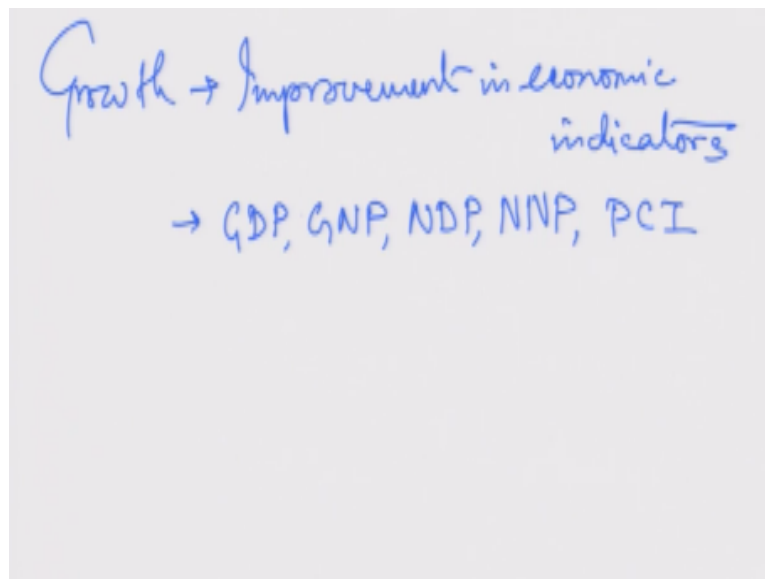 Growth → Improvement in economic
indicators
→ GDP, GNP, NDP, NNP, PCI